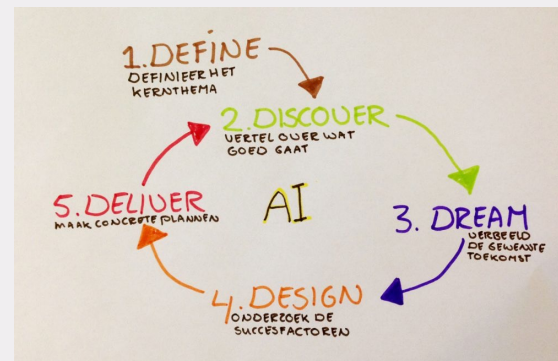 1. DEFINE
DEFINIEER HET
KERNTHEMA
2. DISCOVER
VERTEL OVER WAT
GOED GAAT
3. DREAM
VERBEELD
DE GEWENSTE
TOEKOMST
4. DESIGN
ONDERZOEK DE
SUCCESFACTOREN
5. DELIVER
MAAK CONCRETE PLANNEN
AI